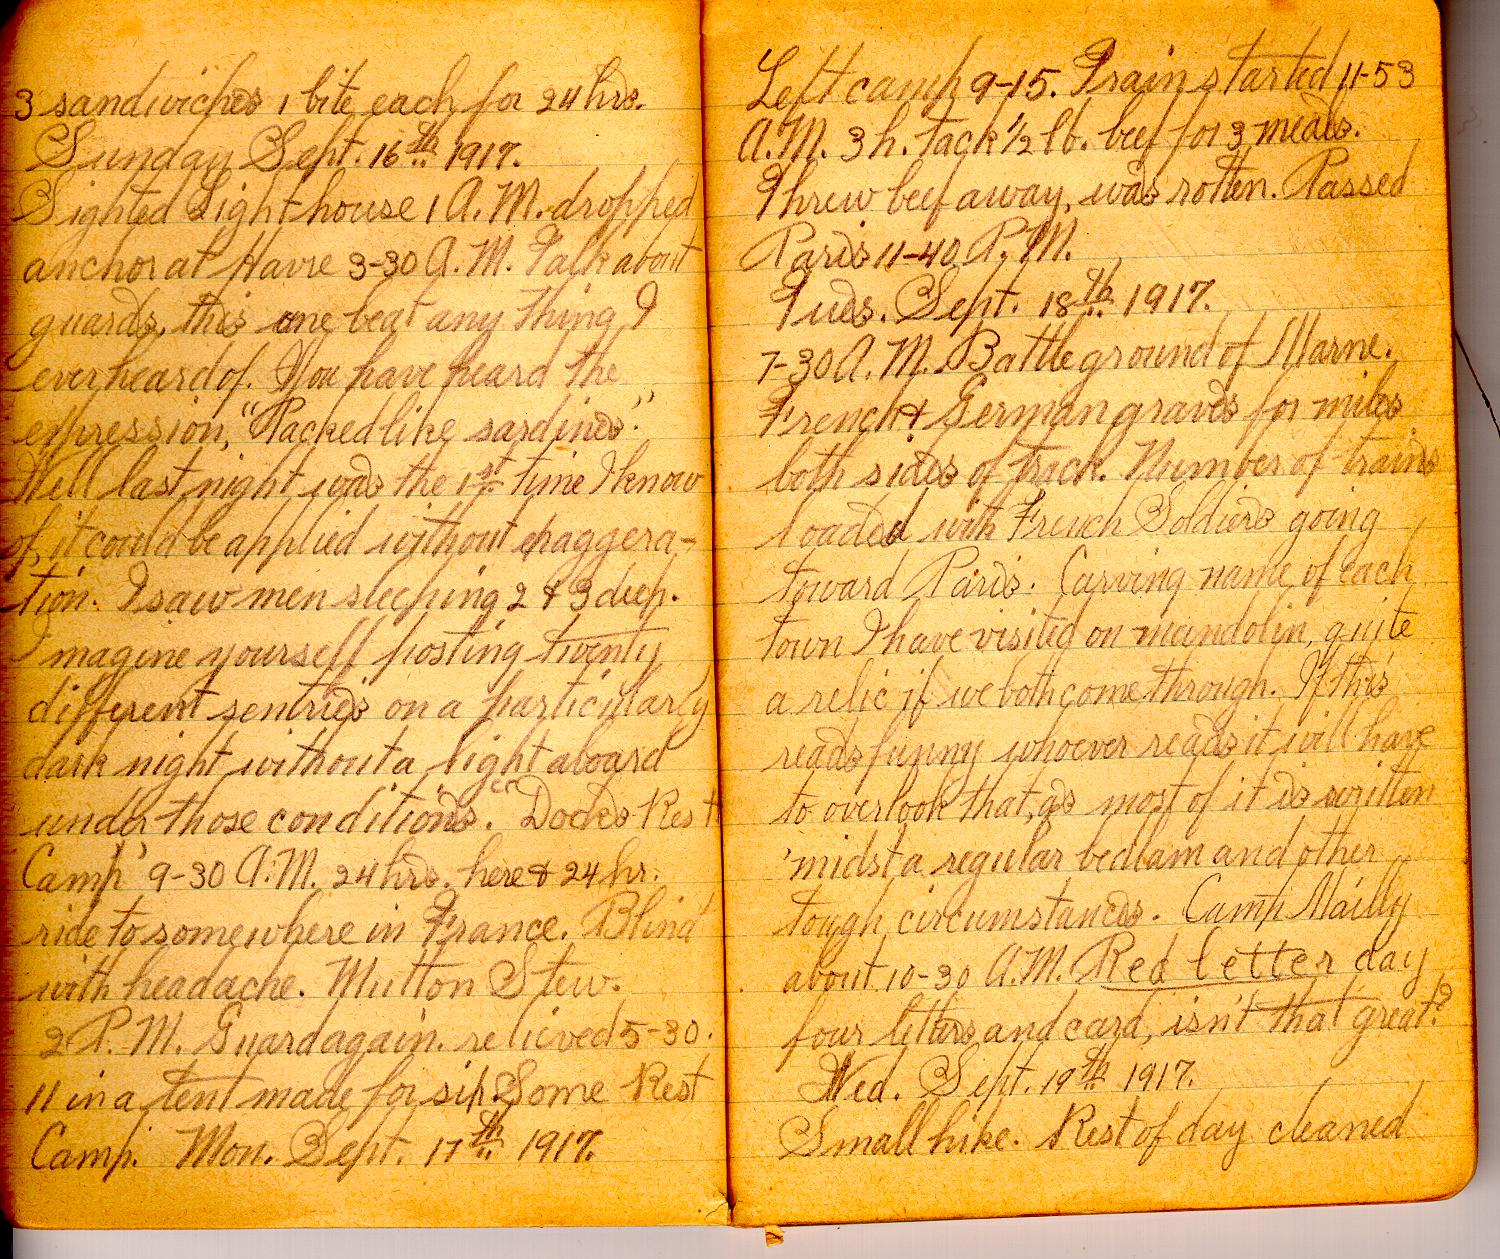 3 sandwiches 1 bite each for 24 hrs.
Sunday Sept. 16th 1917.
Sighted Light house 1 A.M. dropped
anchor at Havre 3-30 A.M. Talk about
guards, this one beat any thing I
ever heard of. You have heard the
expression, "Packed like sardines".
Well last night was the 1st time I know
of, it could be applied without exaggera-
tion. I saw men sleeping 2 & 3 deep.
Imagine yourself posting twenty
different sentries on a particularly
dark night without a light aboard
under those conditions. Docks Rest
Camp 9-30 A.M. 24 hrs. here & 24 hr.
ride to somewhere in France. Blind
with headache. Mutton Stew.
2 P.M. Guard again. relieved 5-30.
11 in a tent made for six. Some Rest
Camp. Mon. Sept. 17th 1917.
Left camp 9-15. Train started 11-53
A.M. 3 h. tack 1/2 lb. beef for 3 meals.
Threw beef away, was rotten. Passed
Paris 11-40 P.M.
Tues. Sept. 18th 1917.
7-30 A.M. Battle ground of Marne.
French & German graves for miles
both sides of track. Number of trains
loaded with French Soldiers going
toward Paris. Carving name of each
town I have visited on mandolin, quite
a relic if we both come through. If this
reads funny whoever reads it will have
to overlook that, as most of it is written
'midst a regular bedlam and other
tough circumstances. Camp Mailly
about 10-30 A.M. Red letter day
four letters and card, isn't that great?
Wed. Sept. 19th 1917.
Small hike. Rest of day cleaned